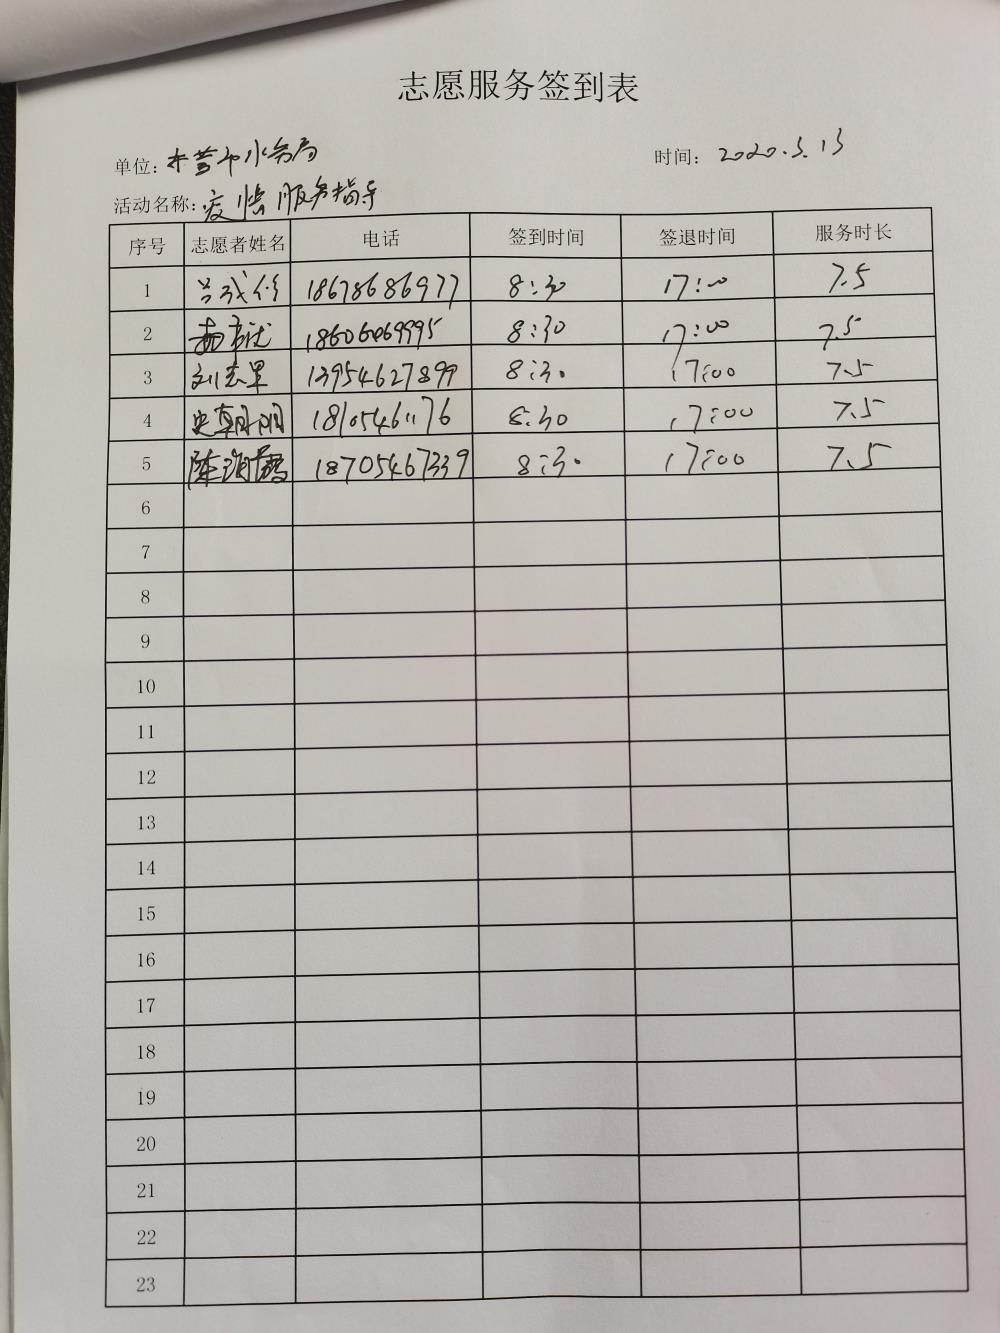 志愿服务签到表
单位：东营市水务局
时间：2020.3.13
活动名称：疫情服务指导
序号 志愿者姓名 电话 签到时间 签退时间 服务时长
1 18678686977 8:30 17:00 7.5
2 18606469995 8:30 17:00 7.5
3 刘志军 13954627899 8:30 17:00 7.5
4 史朝阳 18105461176 8:30 17:00 7.5
5 18705467339 8:30 17:00 7.5
6
7
8
9
10
11
12
13
14
15
16
17
18
19
20
21
22
23